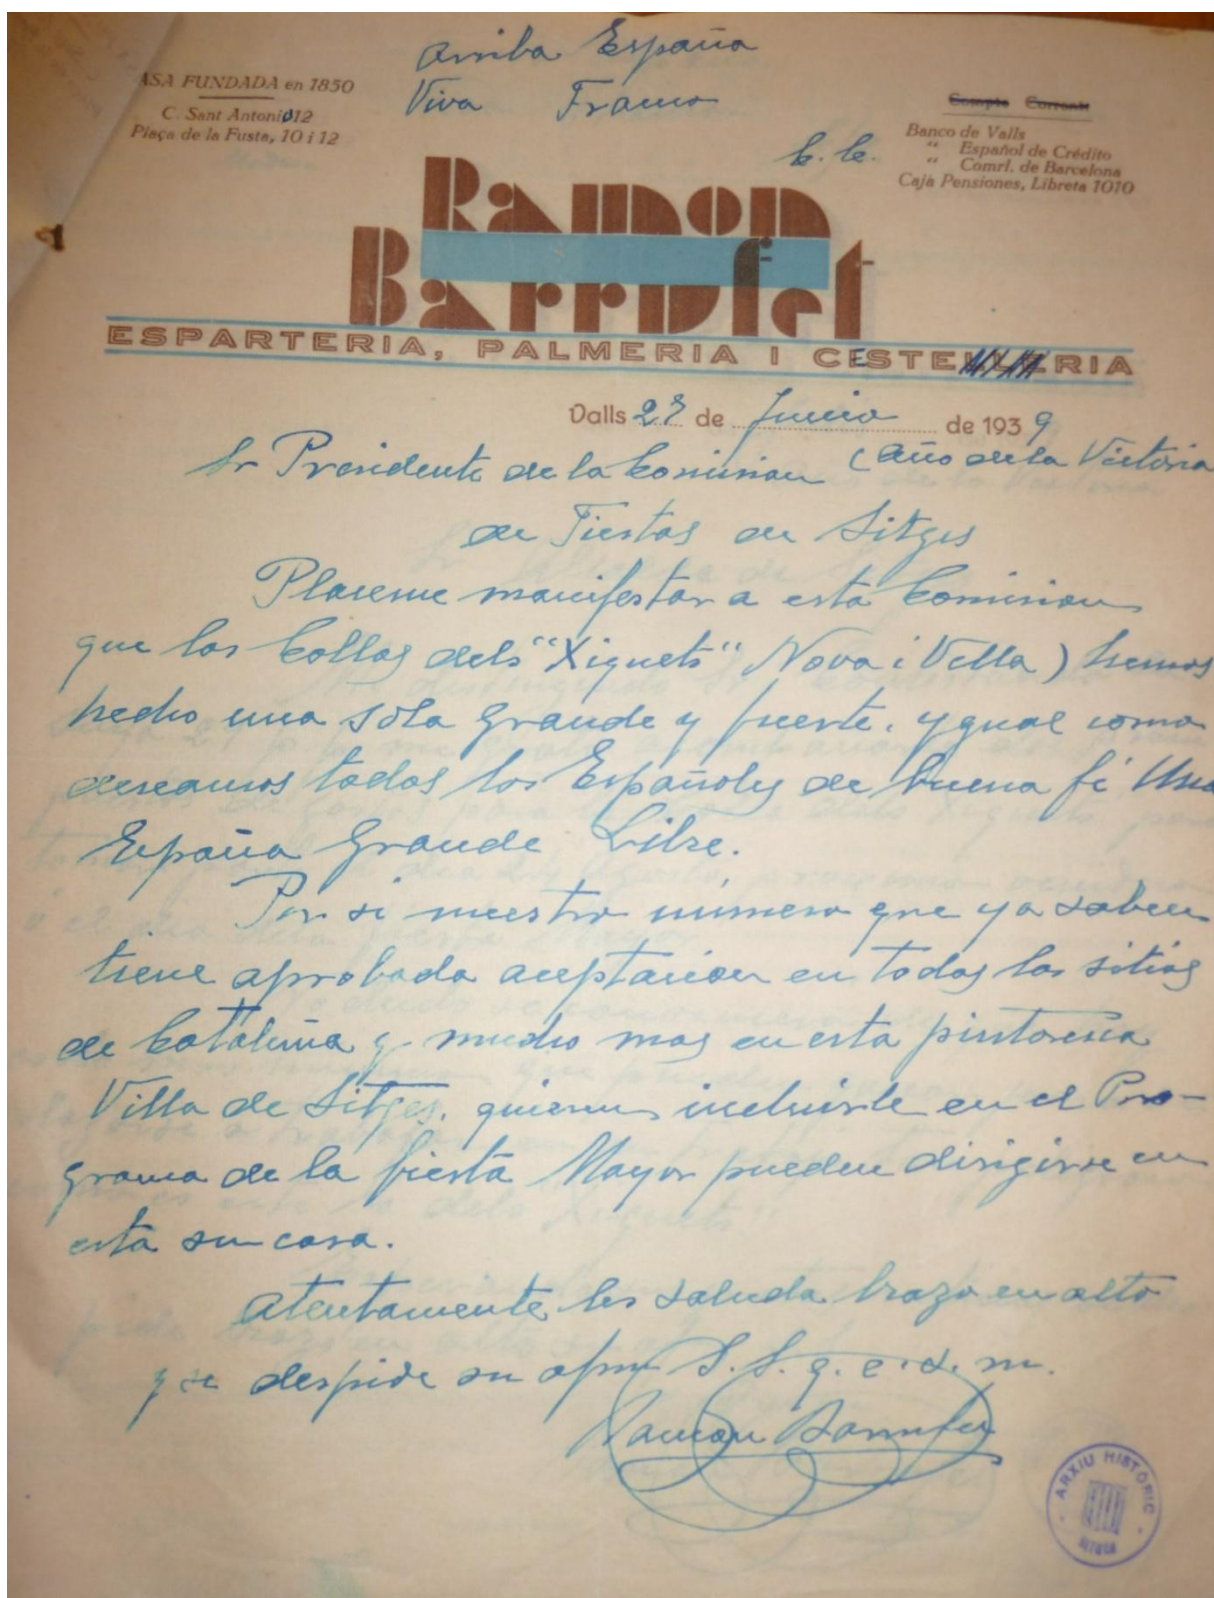 Arriba España
Viva Franco
ASA FUNDADA en 1850
C. Sant Antonio 12
Plaça de la Fusta, 10 i 12
Compte Corrent
C. C.
Banco de Valls
" Español de Crédito
" Comrl. de Barcelona
Caja Pensiones, Libreta 1010
Ramon
Barrufet
ESPARTERIA, PALMERIA I CESTERIA
Valls 27 de Junio de 1939
(Año de la Victoria
Sr Presidente de la Comision
de Fiestas de Sitges
Placeme manifestar a esta Comision
que las Collas dels "Xiquets" Nova i Vella) hemos
hecho una sola grande y fuerte. ygual como
deseamos todos los Españoles de buena fé Una
España Grande Libre.
Por si nuestro número que ya saben
tiene aprobada aceptacion en todos los sitios
de Cataluña y mucho mas en esta pintoresca
Villa de Sitges. quieren incluirle en el Pro-
grama de la fiesta Mayor pueden dirigirse en
esta su casa.
Atentamente les saluda brazo en alto
y se despide su afmo S. S. q. e. s. m.
Ramon Barrufet
ARXIU HISTÒRIC
SITGES